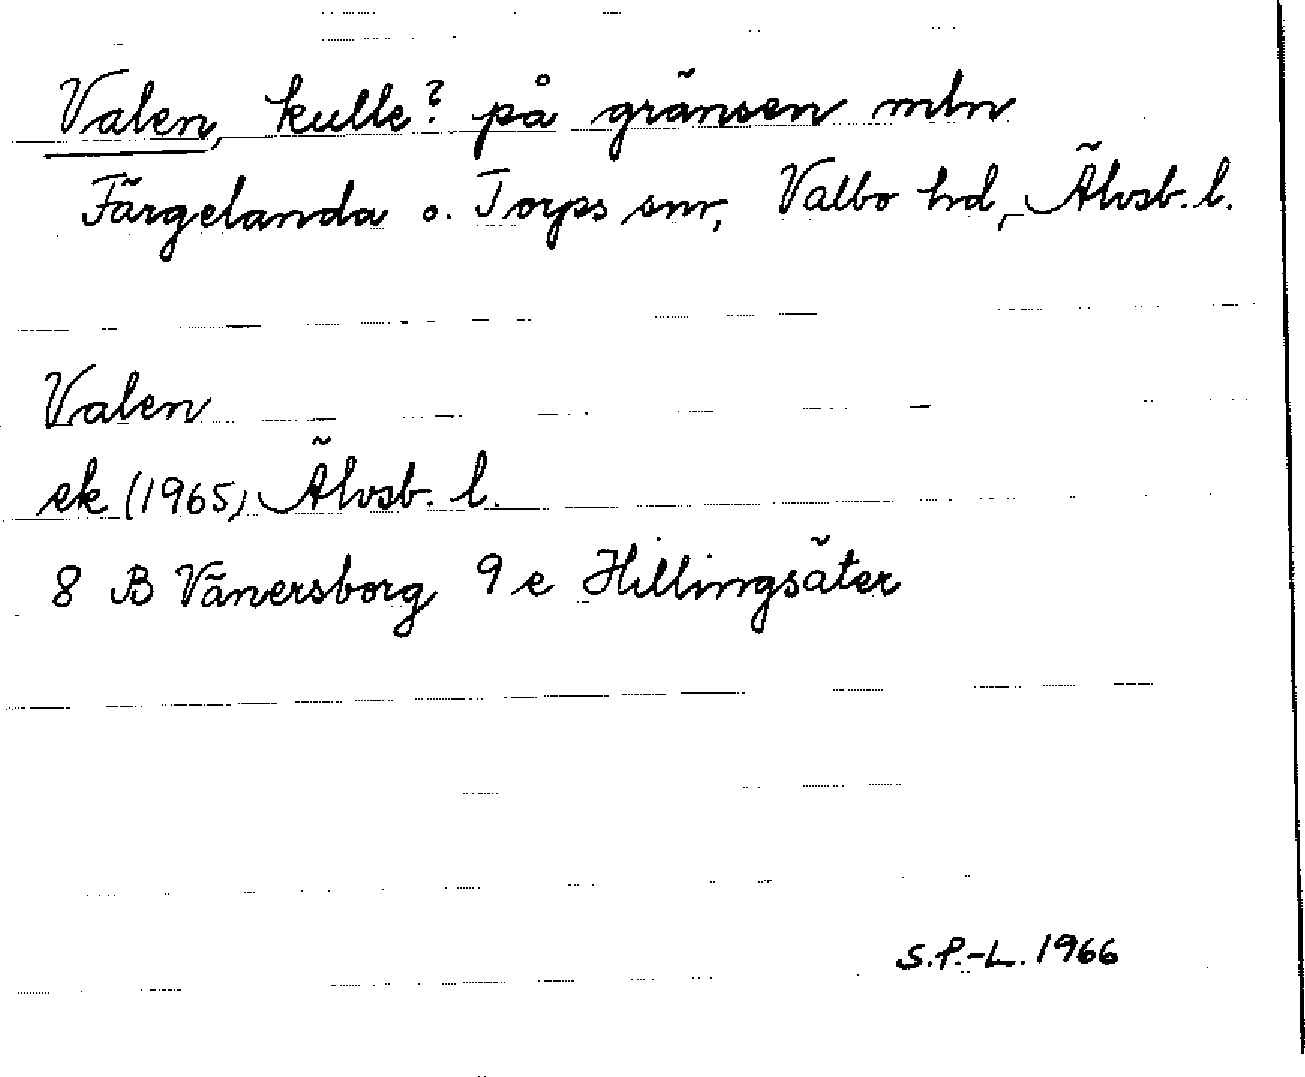 Valen, kulle? på gränsen mln
Färgelanda o. Torps snr, Valbo hd, Älvsb. l.
Valen
ek (1965) Älvsb. l.
8 B Vänersborg 9 e Hillingsäter
S.P.-L. 1966